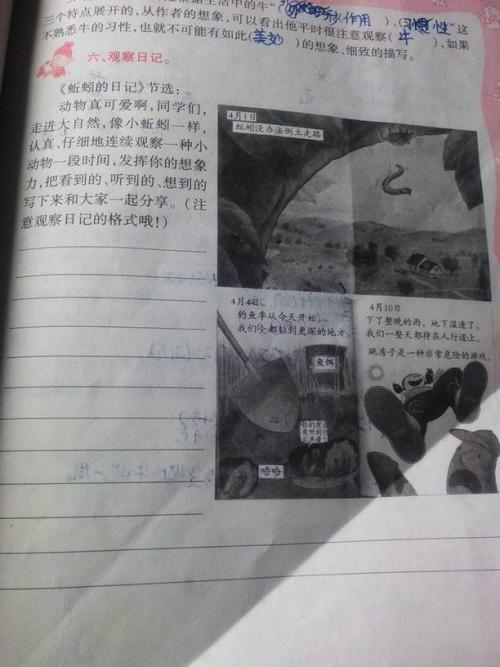 三个特点展开的,从作者的想象,可以看出他平时很注意观察(牛),如果
不熟悉牛的习性,也就不可能有如此(美妙)的想象、细致的描写。
六、观察日记。
《蚯蚓的日记》节选:
动物真可爱啊,同学们,
走进大自然,像小蚯蚓一样,
认真、仔细地连续观察一种小
动物一段时间,发挥你的想象
力,把看到的、听到的、想到的
写下来和大家一起分享。(注
意观察日记的格式哦!)
4月1日
蚯蚓没办法倒立走路
4月4日
钓鱼季从今天开始。
我们全都钻到更深的地方
鱼饵
哈哈
4月10日
下了整晚的雨,地下湿透了。
我们一整天都待在人行道上。
跳房子是一种非常危险的游戏。